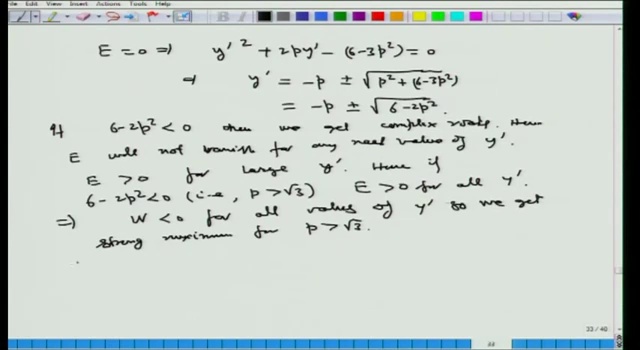 Edit View Insert Actions Tools Help
E = 0 ⇒ y'² + 2py' − (6−3p²) = 0
⇒ y' = −p ± √(p² + (6−3p²))
= −p ± √(6−2p²).
If 6−2p² < 0 then we get complex roots. Hence
E will not vanish for any real value of y'.
E > 0 for large y'. Hence if
6−2p² < 0 (i.e., p > √3) E > 0 for all y'.
⇒) W < 0 for all values of y' so we get
strong maximum for p > √3.
33 / 40
33